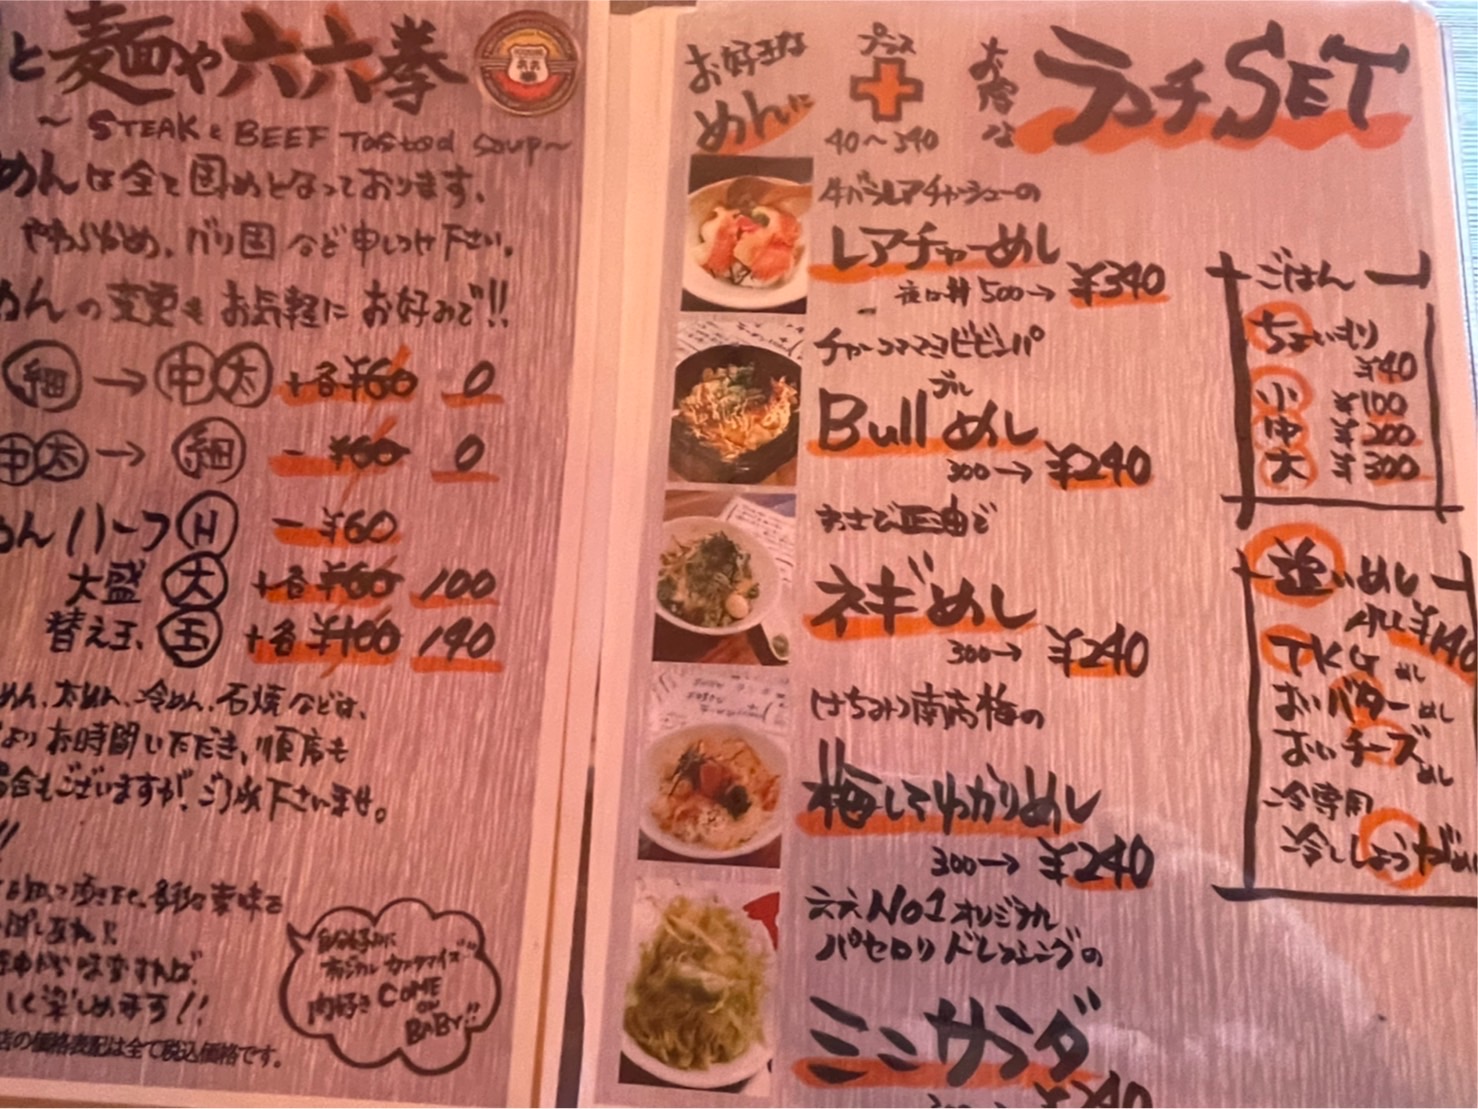 と麺や六六拳
～STEAK & BEEF Tasted Soup～
めんは全て固めとなっております。
やわらかめ、バリ固など申しつけ下さい。
めんの変更もお気軽にお好みで!!
細→中太 +各¥60 0
中太→細 -¥60 0
めんハーフH -¥60
大盛 大 +各¥60 100
替え玉 玉 +各¥100 140
めん、太めん、冷めん、石焼などは、
よりお時間いただき、順序も
場合もございますが、ご了承下さいませ。
!!
して楽しめます!!
店の価格表記は全て税込価格です。
自分好みに
オリジナル カスタマイズ
肉好き COME
ON
BABY!!
お好きな
めんに
プラス
+
40～340
お得な
ランチSET
牛バラレアチャーシューの
レアチャーめし
夜は丼500→¥340
チャーコマコマビビンバ
ブル
Bullめし
300→¥240
わさび正油で
ネギめし
300→¥240
はちみつ南高梅の
梅してわかりめし
300→¥240
六六No1オリジナル
パセロリドレッシングの
ミニサラダ
¥240
ごはん
ちょいもり
¥40
小 ¥100
中 ¥200
大 ¥300
追いめし
ALL¥140
TKGめし
おいバターめし
おいチーズめし
冷専用
冷ししょうが